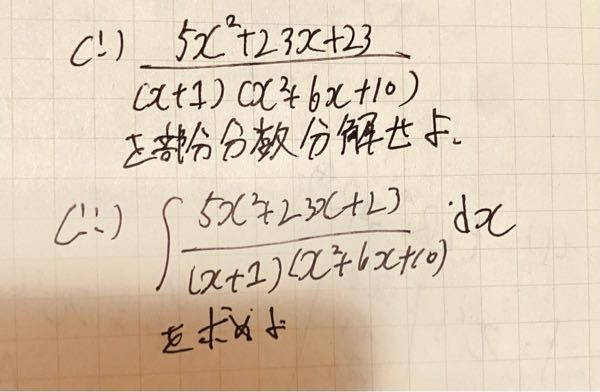 (i) 5x²+23x+23
(x+1)(x²+6x+10)
を部分分数分解せよ.
(ii) ∫ 5x²+23x+23 dx
(x+1)(x²+6x+10)
を求めよ